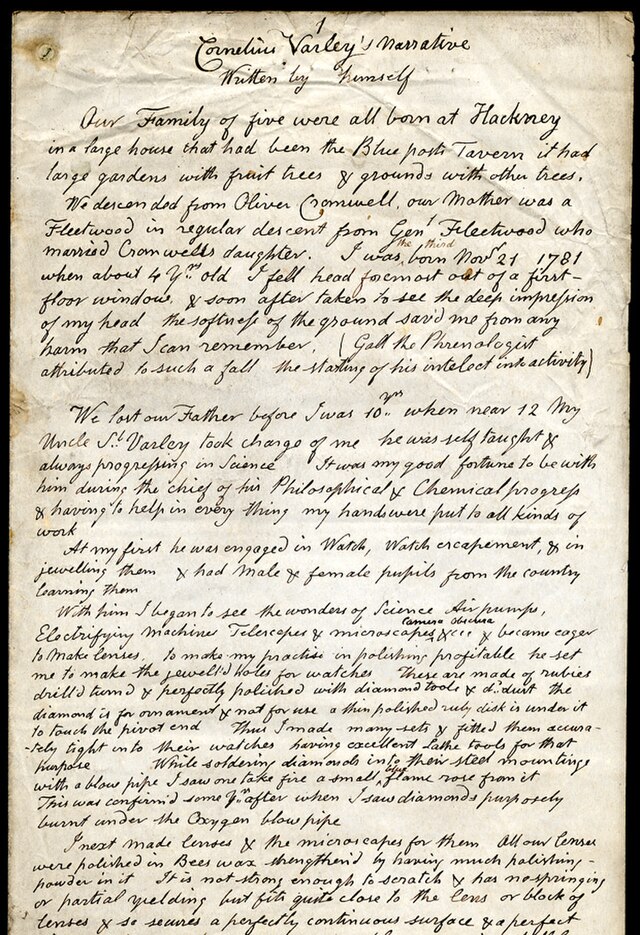 1
1
Cornelius Varley's Narrative
Written by himself
Our Family of five were all born at Hackney
in a large house that had been the Blue posts Tavern it had
large gardens with fruit trees & grounds with other trees.
We descended from Oliver Cromwell, our Mother was a
Fleetwood in regular descent from Genl Fleetwood who
married Cromwells daughter. I was the third born Novr 21 1781
when about 4 Yrs old I fell head foremost out of a first-
floor window, & soon after taken to see the deep impression
of my head the softness of the ground sav'd me from any
harm that I can remember. (Gall the Phrenologist
attributed to such a fall the starting of his intelect into activity)
We lost our Father before I was 10 yrs when near 12 My
Uncle Sl Varley took charge of me he was self taught &
always progressing in Science It was my good fortune to be with
him during the chief of his Philosophical & Chemical progress
& having to help in every thing my hands were put to all kinds of
work
At my first he was engaged in Watch, Watch escapement, & in
jewelling them & had Male & female pupils from the country
learning them
With him I began to see the wonders of Science Air pumps,
Electrifying Machines Telescopes & microscopes, camera obscura &c &c & became eager
to make lenses, to make my practise in polishing profitable he set
me to make the jewell'd holes for watches These are made of rubies
drill'd turnd & perfectly polished with diamond tools & do. dust the
diamond is for ornament & not for use a thin polished ruby disk is under it
to touch the pivot end Thus I made many sets & fitted them accura-
-tely tight into their watches having excellent Lathe tools for that
purpose While soldering diamonds into their steel mountings
with a blow pipe I saw one take fire a small blue flame rose from it
This was confirmd some yrs after when I saw diamonds purposely
burnt under the Oxygen blow pipe
I next made lenses & the microscopes for them All our lenses
were polished in Bees wax strengthen'd by having much polishing-
powder in it It is not strong enough to scratch & has no springing
or partial yielding but fits quite close to the lens or block of
lenses & so secures a perfectly continuous surface & a perfect